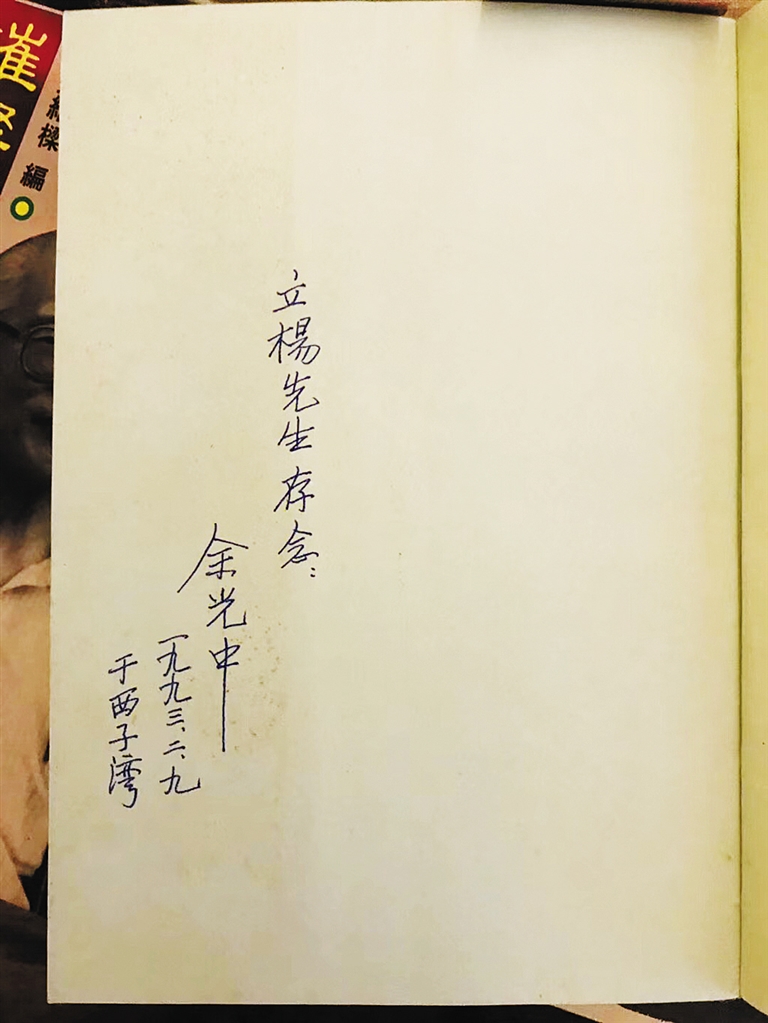 立楊先生存念：
余光中
一九九三、二、九
于西子湾
樑 編